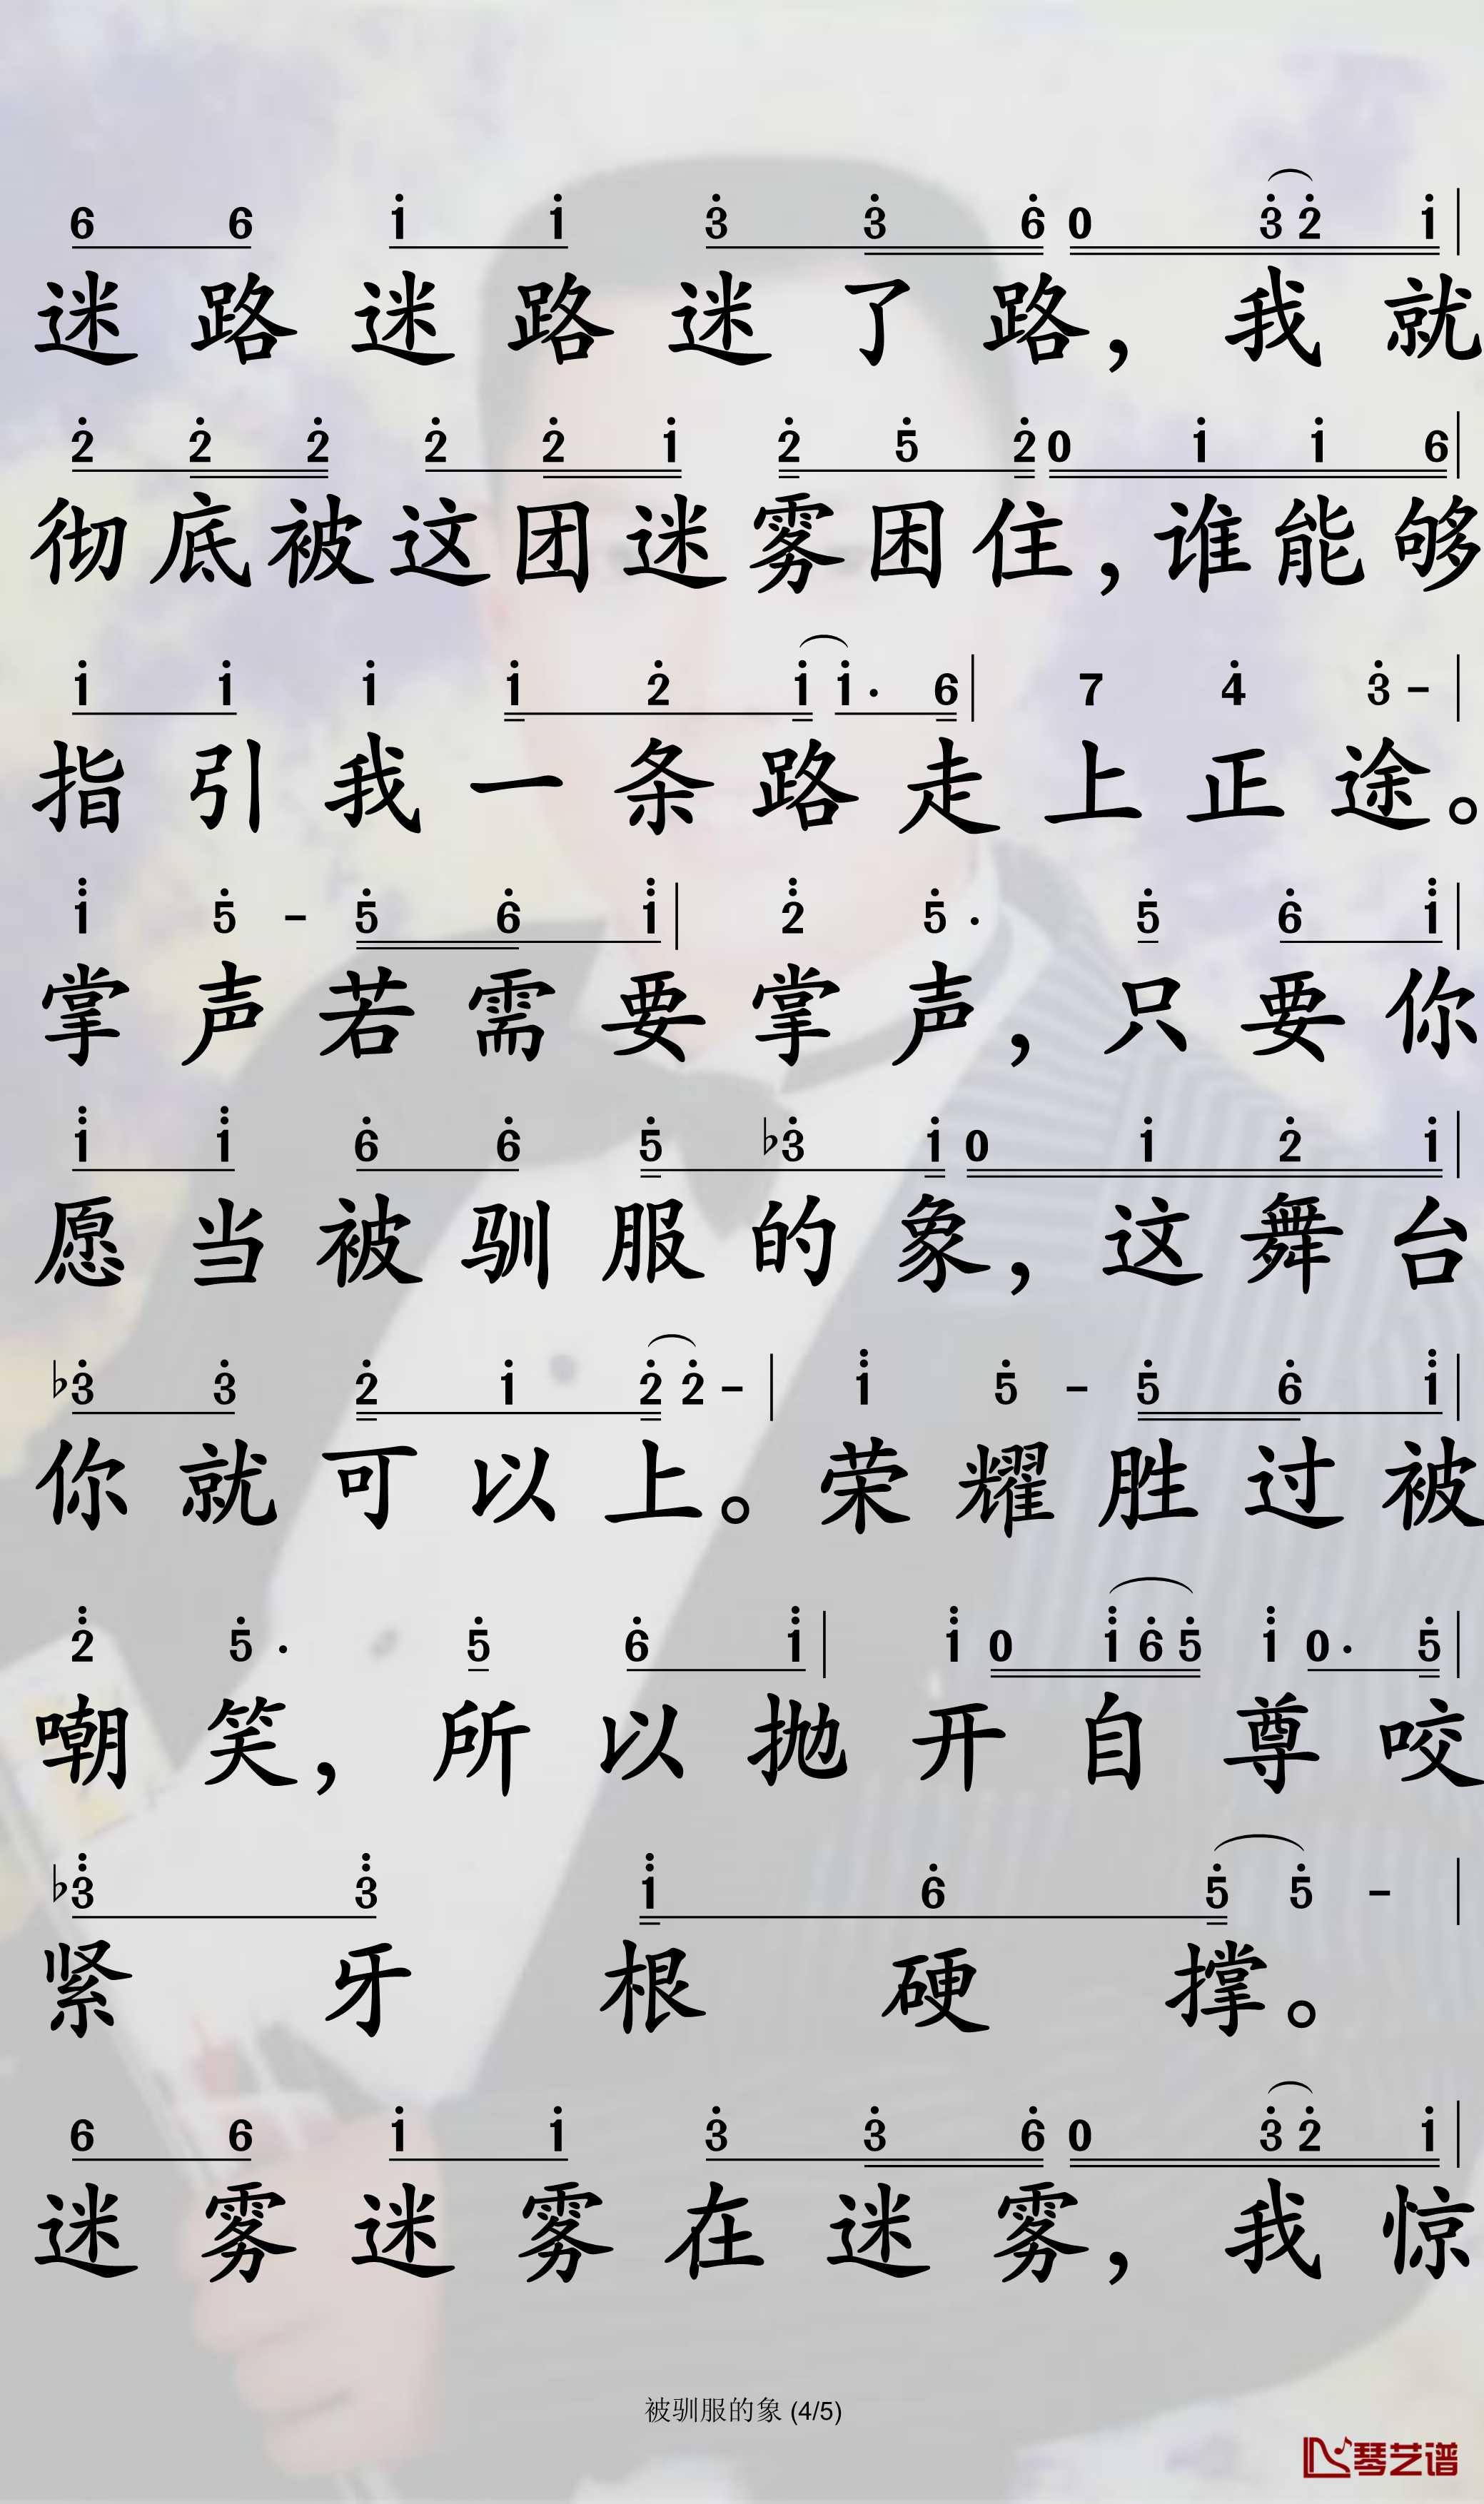 6 6 i i 3 3 6 0 3 2 i |
迷路迷路迷了路，我就
2 2 2 2 2 i 2 5 2 0 i i 6 |
彻底被这团迷雾困住，谁能够
i i i i 2 i i · 6 | 7 4 3 - |
指引我一条路走上正途。
i 5 - 5 6 i | 2 5 · 5 6 i |
掌声若需要掌声，只要你
i i 6 6 5 ♭3 i 0 i 2 i |
愿当被驯服的象，这舞台
♭3 3 2 i 2 2 - | i 5 - 5 6 i |
你就可以上。荣耀胜过被
2 5 · 5 6 i | i 0 i 6 5 i 0 · 5 |
嘲笑，所以抛开自尊咬
♭3 3 i 6 5 5 - |
紧牙根硬撑。
6 6 i i 3 3 6 0 3 2 i |
迷雾迷雾在迷雾，我惊
被驯服的象 (4/5)
琴艺谱